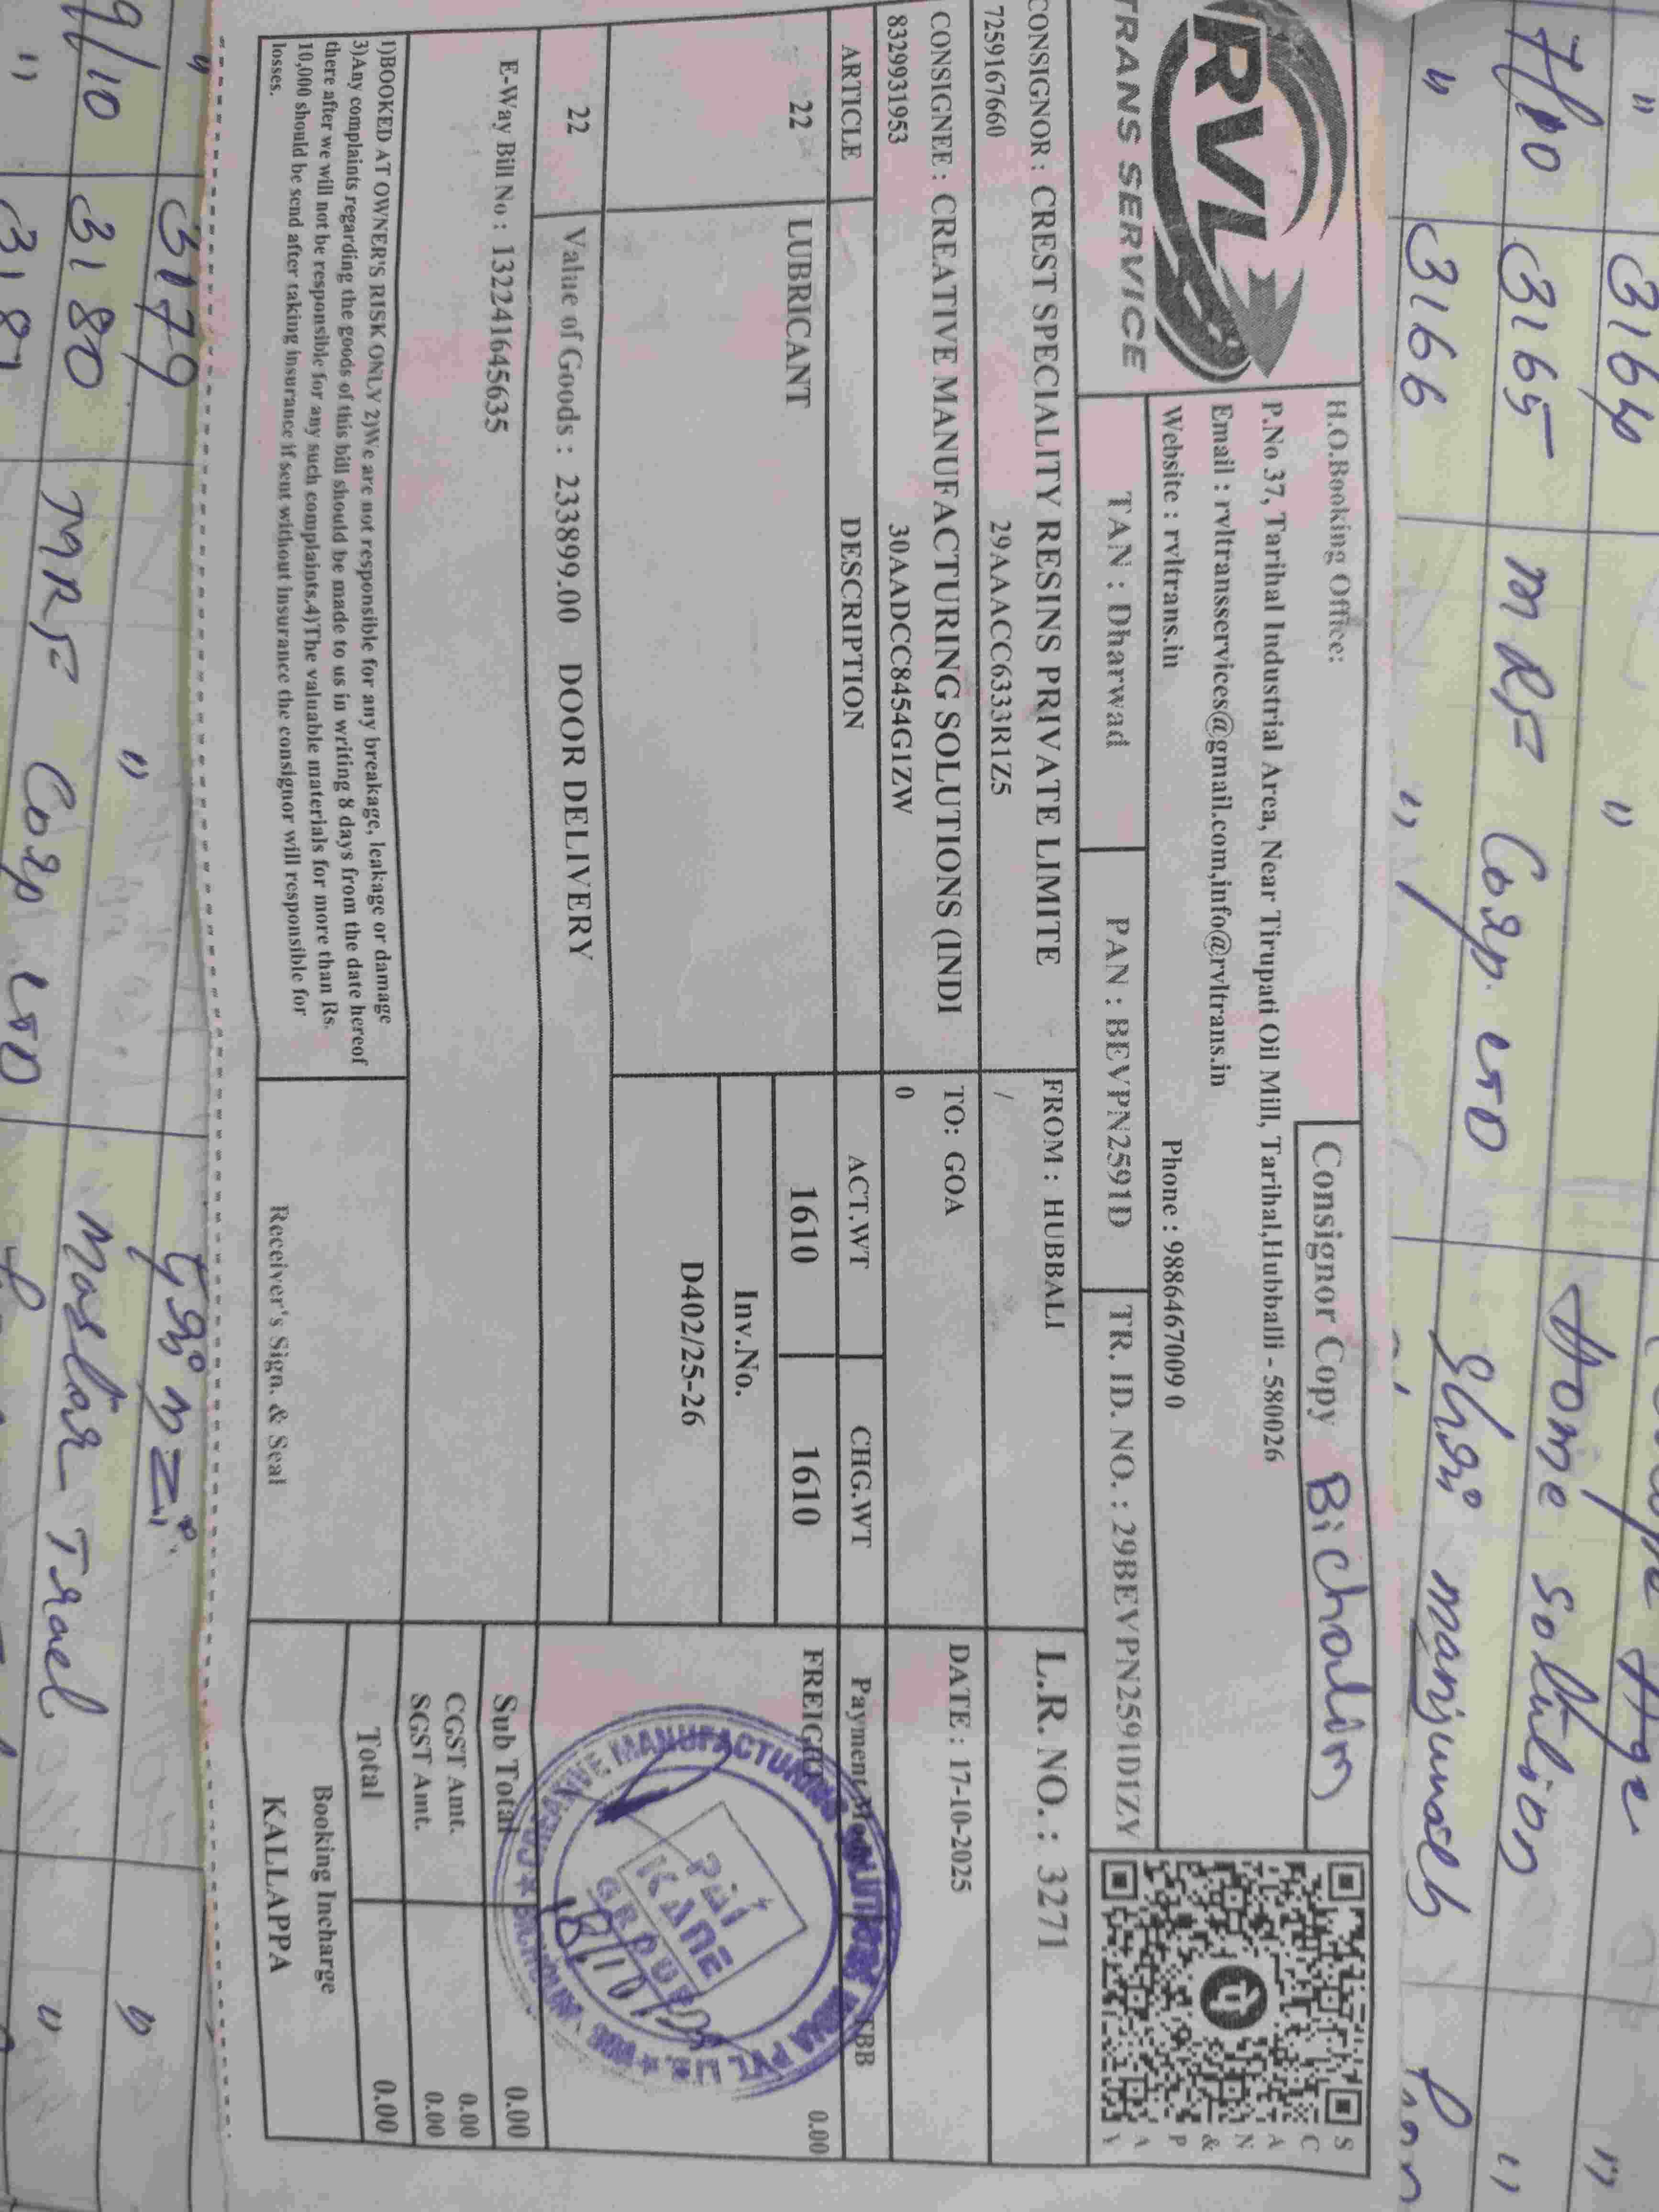 " 3164 "
7/10 3165 MRF Corp. LTD Home solution "
" 3166 " Shri manjunath
RVL
TRANS SERVICE
H.O.Booking Office:
Consignor Copy
Bicholim
P.No 37, Tarihal Industrial Area, Near Tirupati Oil Mill, Tarihal,Hubballi - 580026
Email : rvltransservices@gmail.com,info@rvltrans.in
Website : rvltrans.in Phone : 9886467009 0
SCAN & PAY
TAN : Dharwad PAN : BEVPN2591D TR. ID. NO. : 29BEVPN2591D1ZY
CONSIGNOR : CREST SPECIALITY RESINS PRIVATE LIMITE FROM : HUBBALI L.R. NO. : 3271
7259167660 29AAACC6333R1Z5 /
CONSIGNEE : CREATIVE MANUFACTURING SOLUTIONS (INDI TO: GOA DATE : 17-10-2025
8329931953 30AADCC8454G1ZW 0
ARTICLE DESCRIPTION ACT.WT CHG.WT Payment TBB
22 LUBRICANT 1610 1610 FREIGHT 0.00
Inv.No.
D402/25-26
22 Value of Goods : 233899.00 DOOR DELIVERY
E-Way Bill No : 132241645635
Sub Total 0.00
CGST Amt. 0.00
SGST Amt. 0.00
Total 0.00
CREATIVE MANUFACTURING SOLUTIONS INDIA PVT. LTD.
PAI KANE GROUP
18/10/25
1)BOOKED AT OWNER'S RISK ONLY 2)We are not responsible for any breakage, leakage or damage
3)Any complaints regarding the goods of this bill should be made to us in writing 8 days from the date hereof
there after we will not be responsible for any such complaints.4)The valuable materials for more than Rs.
10,000 should be send after taking insurance if sent without insurance the consignor will responsible for
losses.
Receiver's Sign. & Seal
Booking Incharge
KALLAPPA
" 3179 " "
9/10 3180 MRF Corp LTD "
"